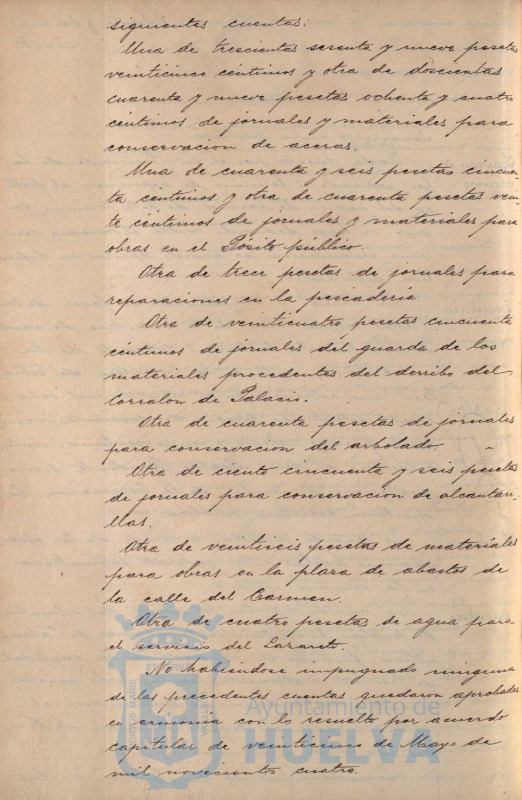 siguientes cuentas:
Una de trescientas sesenta y nueve pesetas
veinticinco céntimos y otra de doscuentas
cuarenta y nueve pesetas ochenta y cuatro
céntimos de jornales y materiales para
conservacion de aceras.
Una de cuarenta y seis pesetas cincuen-
ta céntimos y otra de cuarenta pesetas vein-
te céntimos de jornales y materiales para
obras en el Pósito público.
Otra de trece pesetas de jornales para
reparaciones en la pescadería.
Otra de veinticuatro pesetas cincuenta
céntimos de jornales del guarda de los
materiales procedentes del derribo del
Corralon de Palacio.
Otra de cuarenta pesetas de jornales
para conservacion del arbolado.
Otra de ciento cincuenta y seis pesetas
de jornales para conservacion de alcantari-
llas.
Otra de veintiseis pesetas de materiales
para obras en la plaza de abastos de
la calle del Carmen.
Otra de cuatro pesetas de agua para
el servicio del Lazareto.
No habiéndose impugnado ninguna
de las precedentes cuentas quedaron aprobadas
en armonia con lo resuelto por acuerdo
capitular de veinticinco de Mayo de
mil novecientos cuatro.
Ayuntamiento de
HUELVA